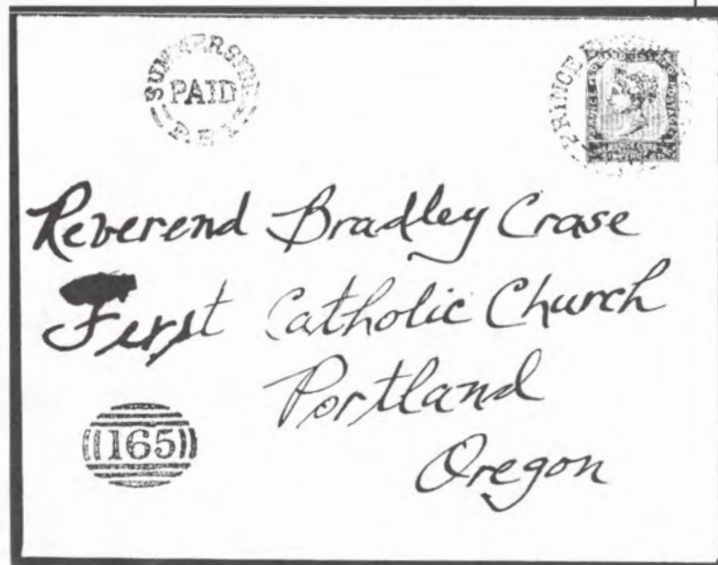 SUMMERSIDE
PAID
P.E.I.
PRINCE
Reverend Bradley Crase
First Catholic Church
Portland
Oregon
165